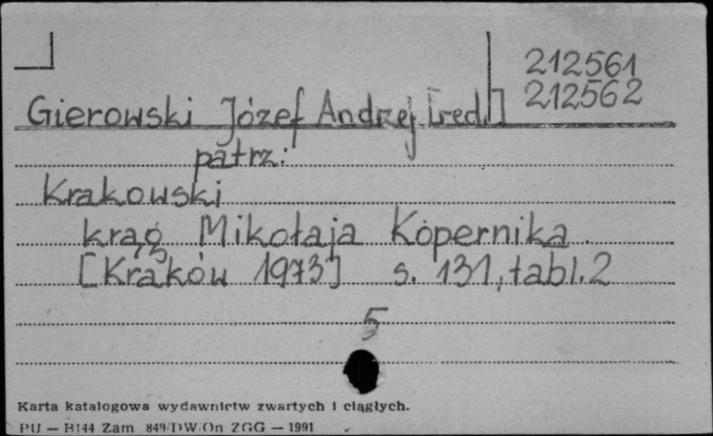 212561
Gierowski Józef Andrzej [red.] 212562
patrz:
Krakowski
krąg Mikołaja Kopernika.
[Kraków 1973] s. 131, tabl. 2
5
Karta katalogowa wydawnictw zwartych i ciągłych.
PU — H144 Zam 849/DW/On ZGG — 1991